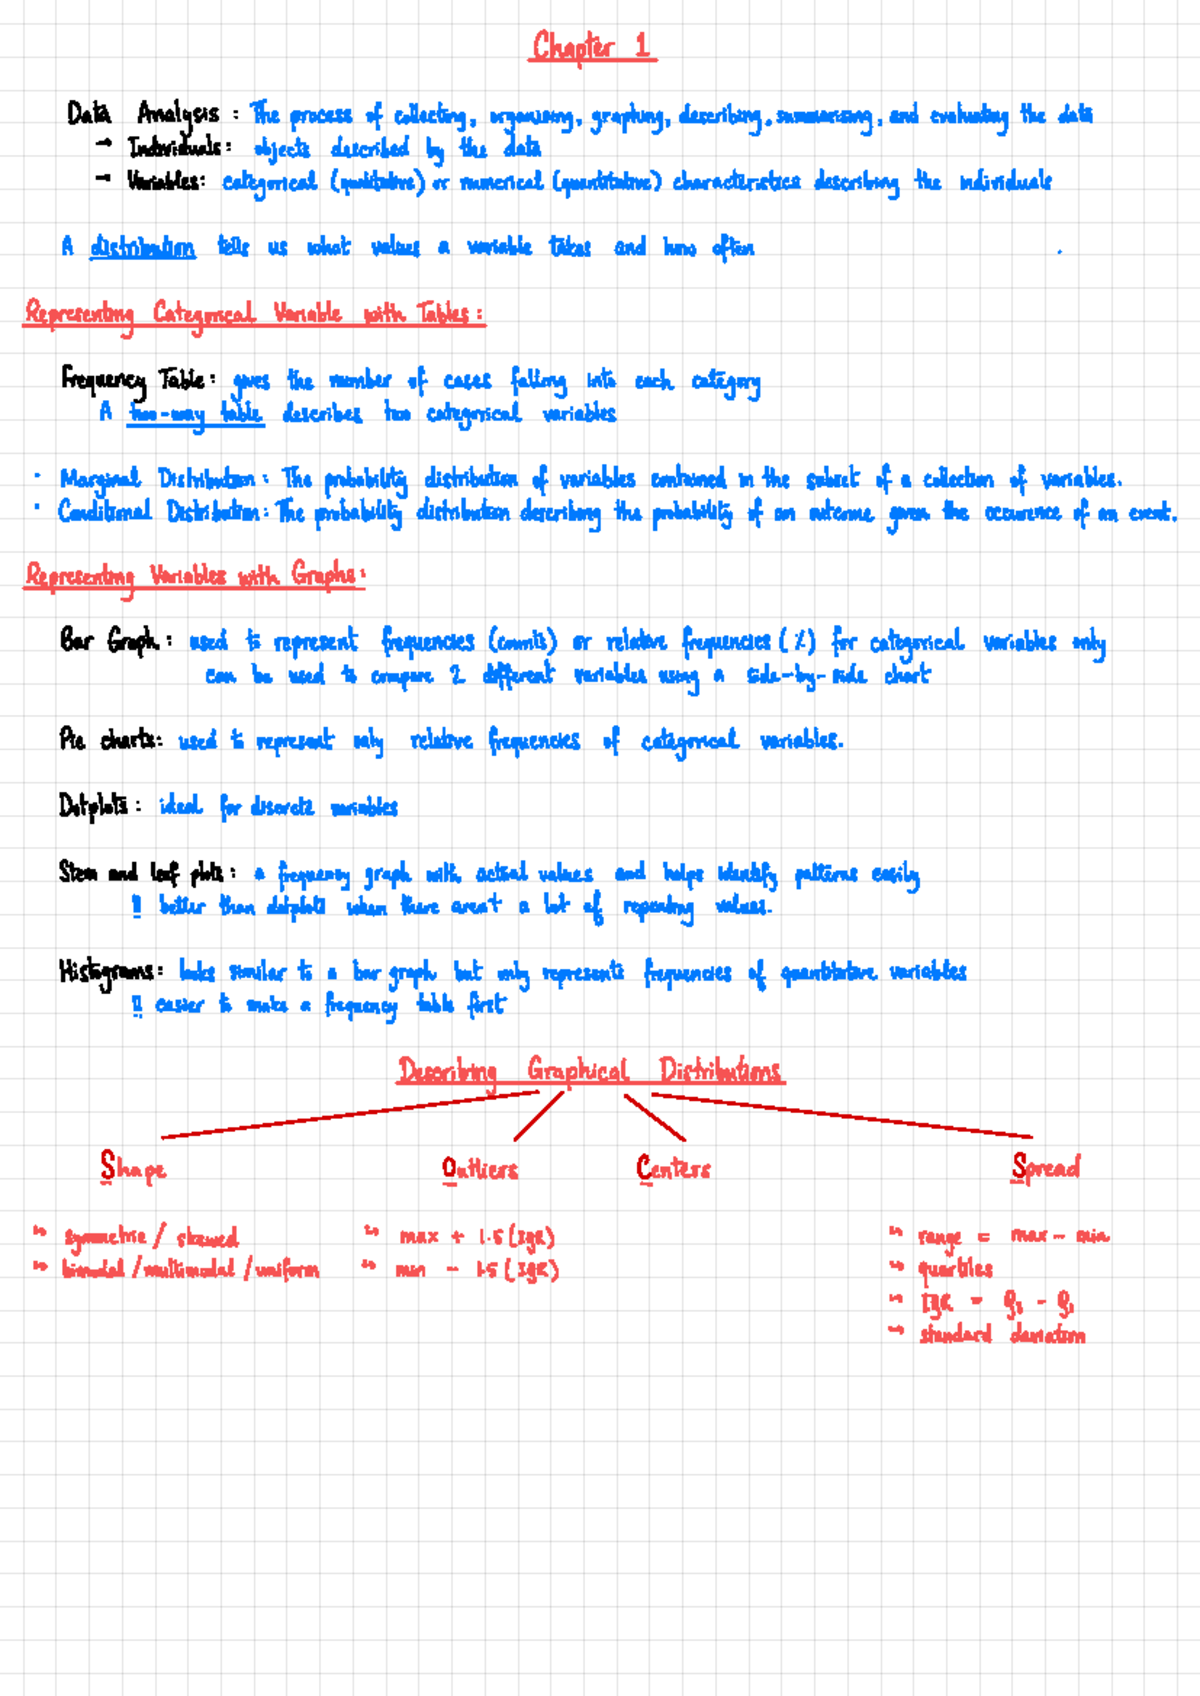 Chapter 1
Data Analysis : The process of collecting, organising, graphing, describing, summarising, and evaluating the data
→ Individuals : objects described by the data
→ Variables: categorical (qualitative) or numerical (quantitative) characteristics describing the individuals
A distribution tells us what values a variable takes and how often
Representing Categorical Variable with Tables :
Frequency Table : gives the number of cases falling into each category
A two-way table describes two categorical variables
· Marginal Distribution : The probability distribution of variables contained in the subset of a collection of variables.
· Conditional Distribution : The probability distribution describing the probability of an outcome given the occurence of an event.
Representing Variables with Graphs :
Bar Graph : used to represent frequencies (counts) or relative frequencies (%) for categorical variables only
can be used to compare 2 different variables using a side-by-side chart
Pie charts: used to represent only relative frequencies of categorical variables.
Dotplots : ideal for discrete variables
Stem and leaf plots : a frequency graph with actual values and helps identify patterns easily
!! better than dotplots when there aren't a lot of repeating values.
Histograms : looks similar to a bar graph but only represents frequencies of quantitative variables
!! easier to make a frequency table first
Describing Graphical Distributions
Shape Outliers Centers Spread
↳ symmetric / skewed ↳ max + 1.5 (IQR) ↳ range = max - min
↳ bimodal / multimodal / uniform ↳ min - 1.5 (IQR) ↳ quartiles
↳ IQR = Q₃ - Q₁
↳ standard deviation